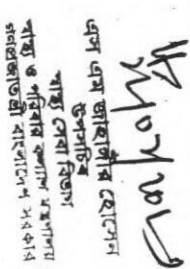 এস এম জাহাঙ্গীর হোসেন
উপসচিব
স্বাস্থ্য সেবা বিভাগ
স্বাস্থ্য ও পরিবার কল্যাণ মন্ত্রণালয়
গণপ্রজাতন্ত্রী বাংলাদেশ সরকার